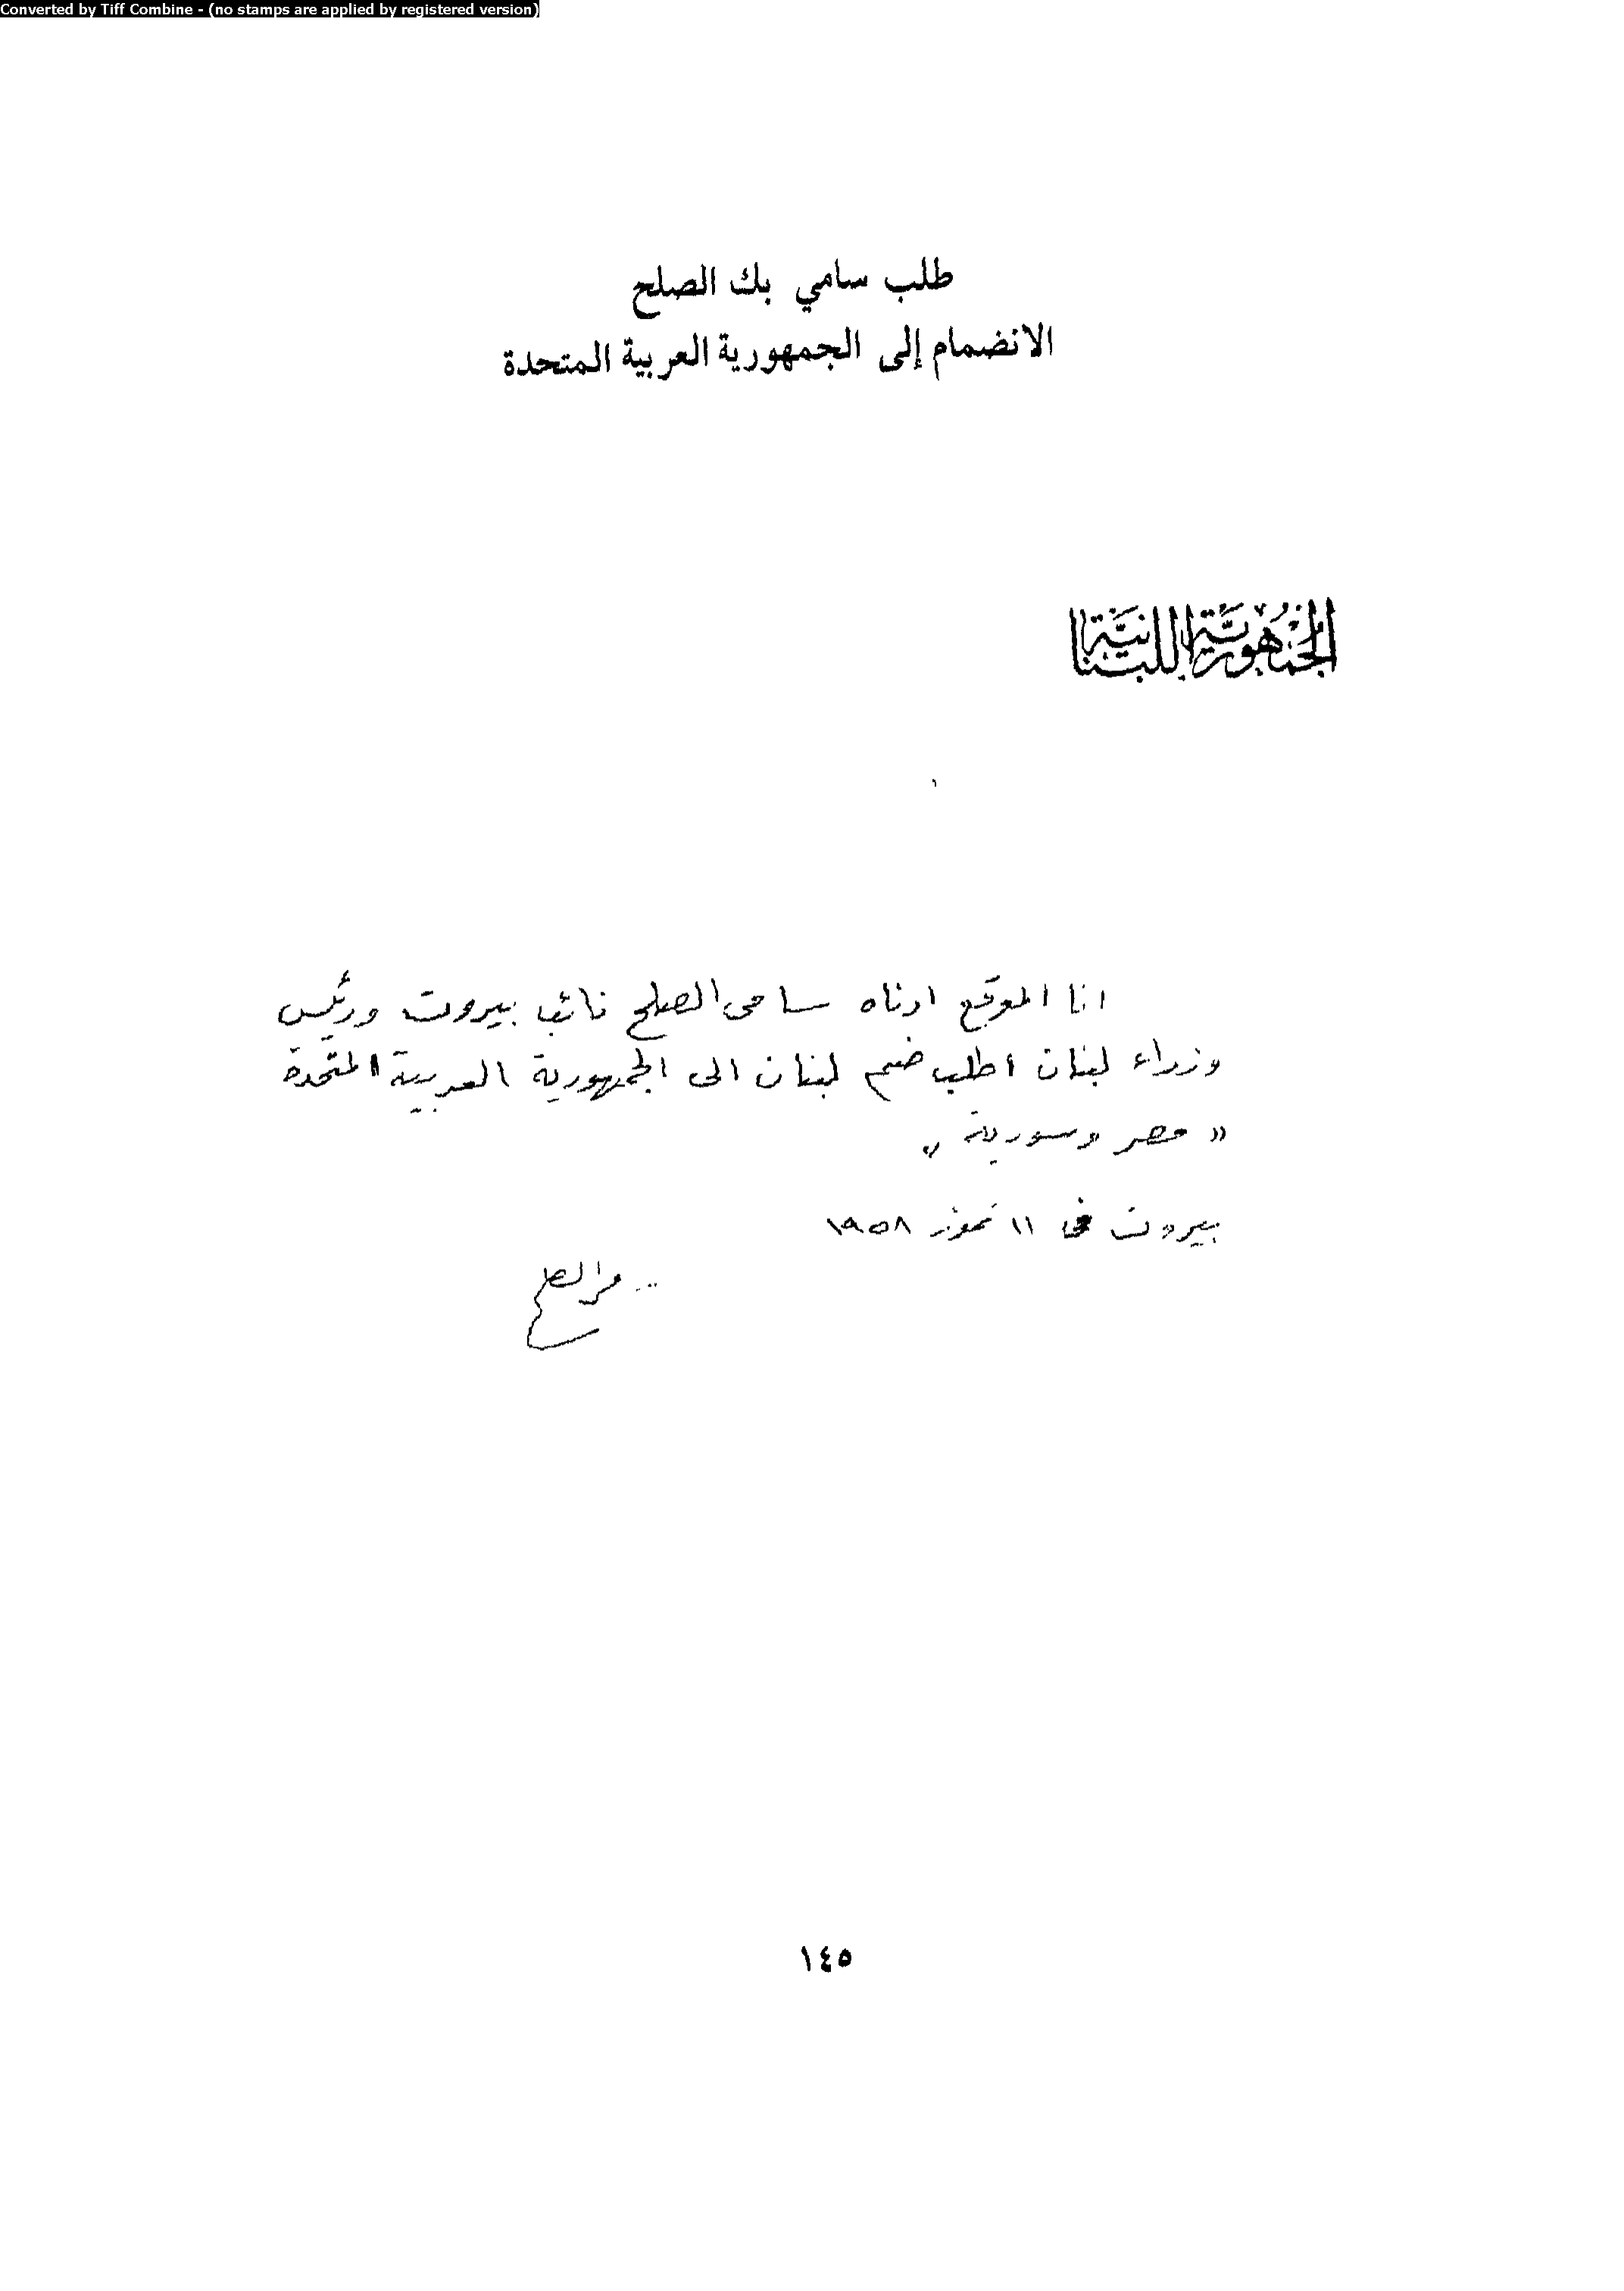 Converted by Tiff Combine - (no stamps are applied by registered version)
طلب سامي بك الصلح
الانضمام إلى الجمهورية العربية المتحدة
الجمهورية اللبنانية
انا الموقع ادناه سامي الصلح نائب بيروت ورئيس
وزراء لبنان اطلب ضم لبنان الى الجمهورية العربية المتحدة
« مصر وسورية »
بيروت في ١١ تموز ١٩٥٨
سامي الصلح
١٤٥